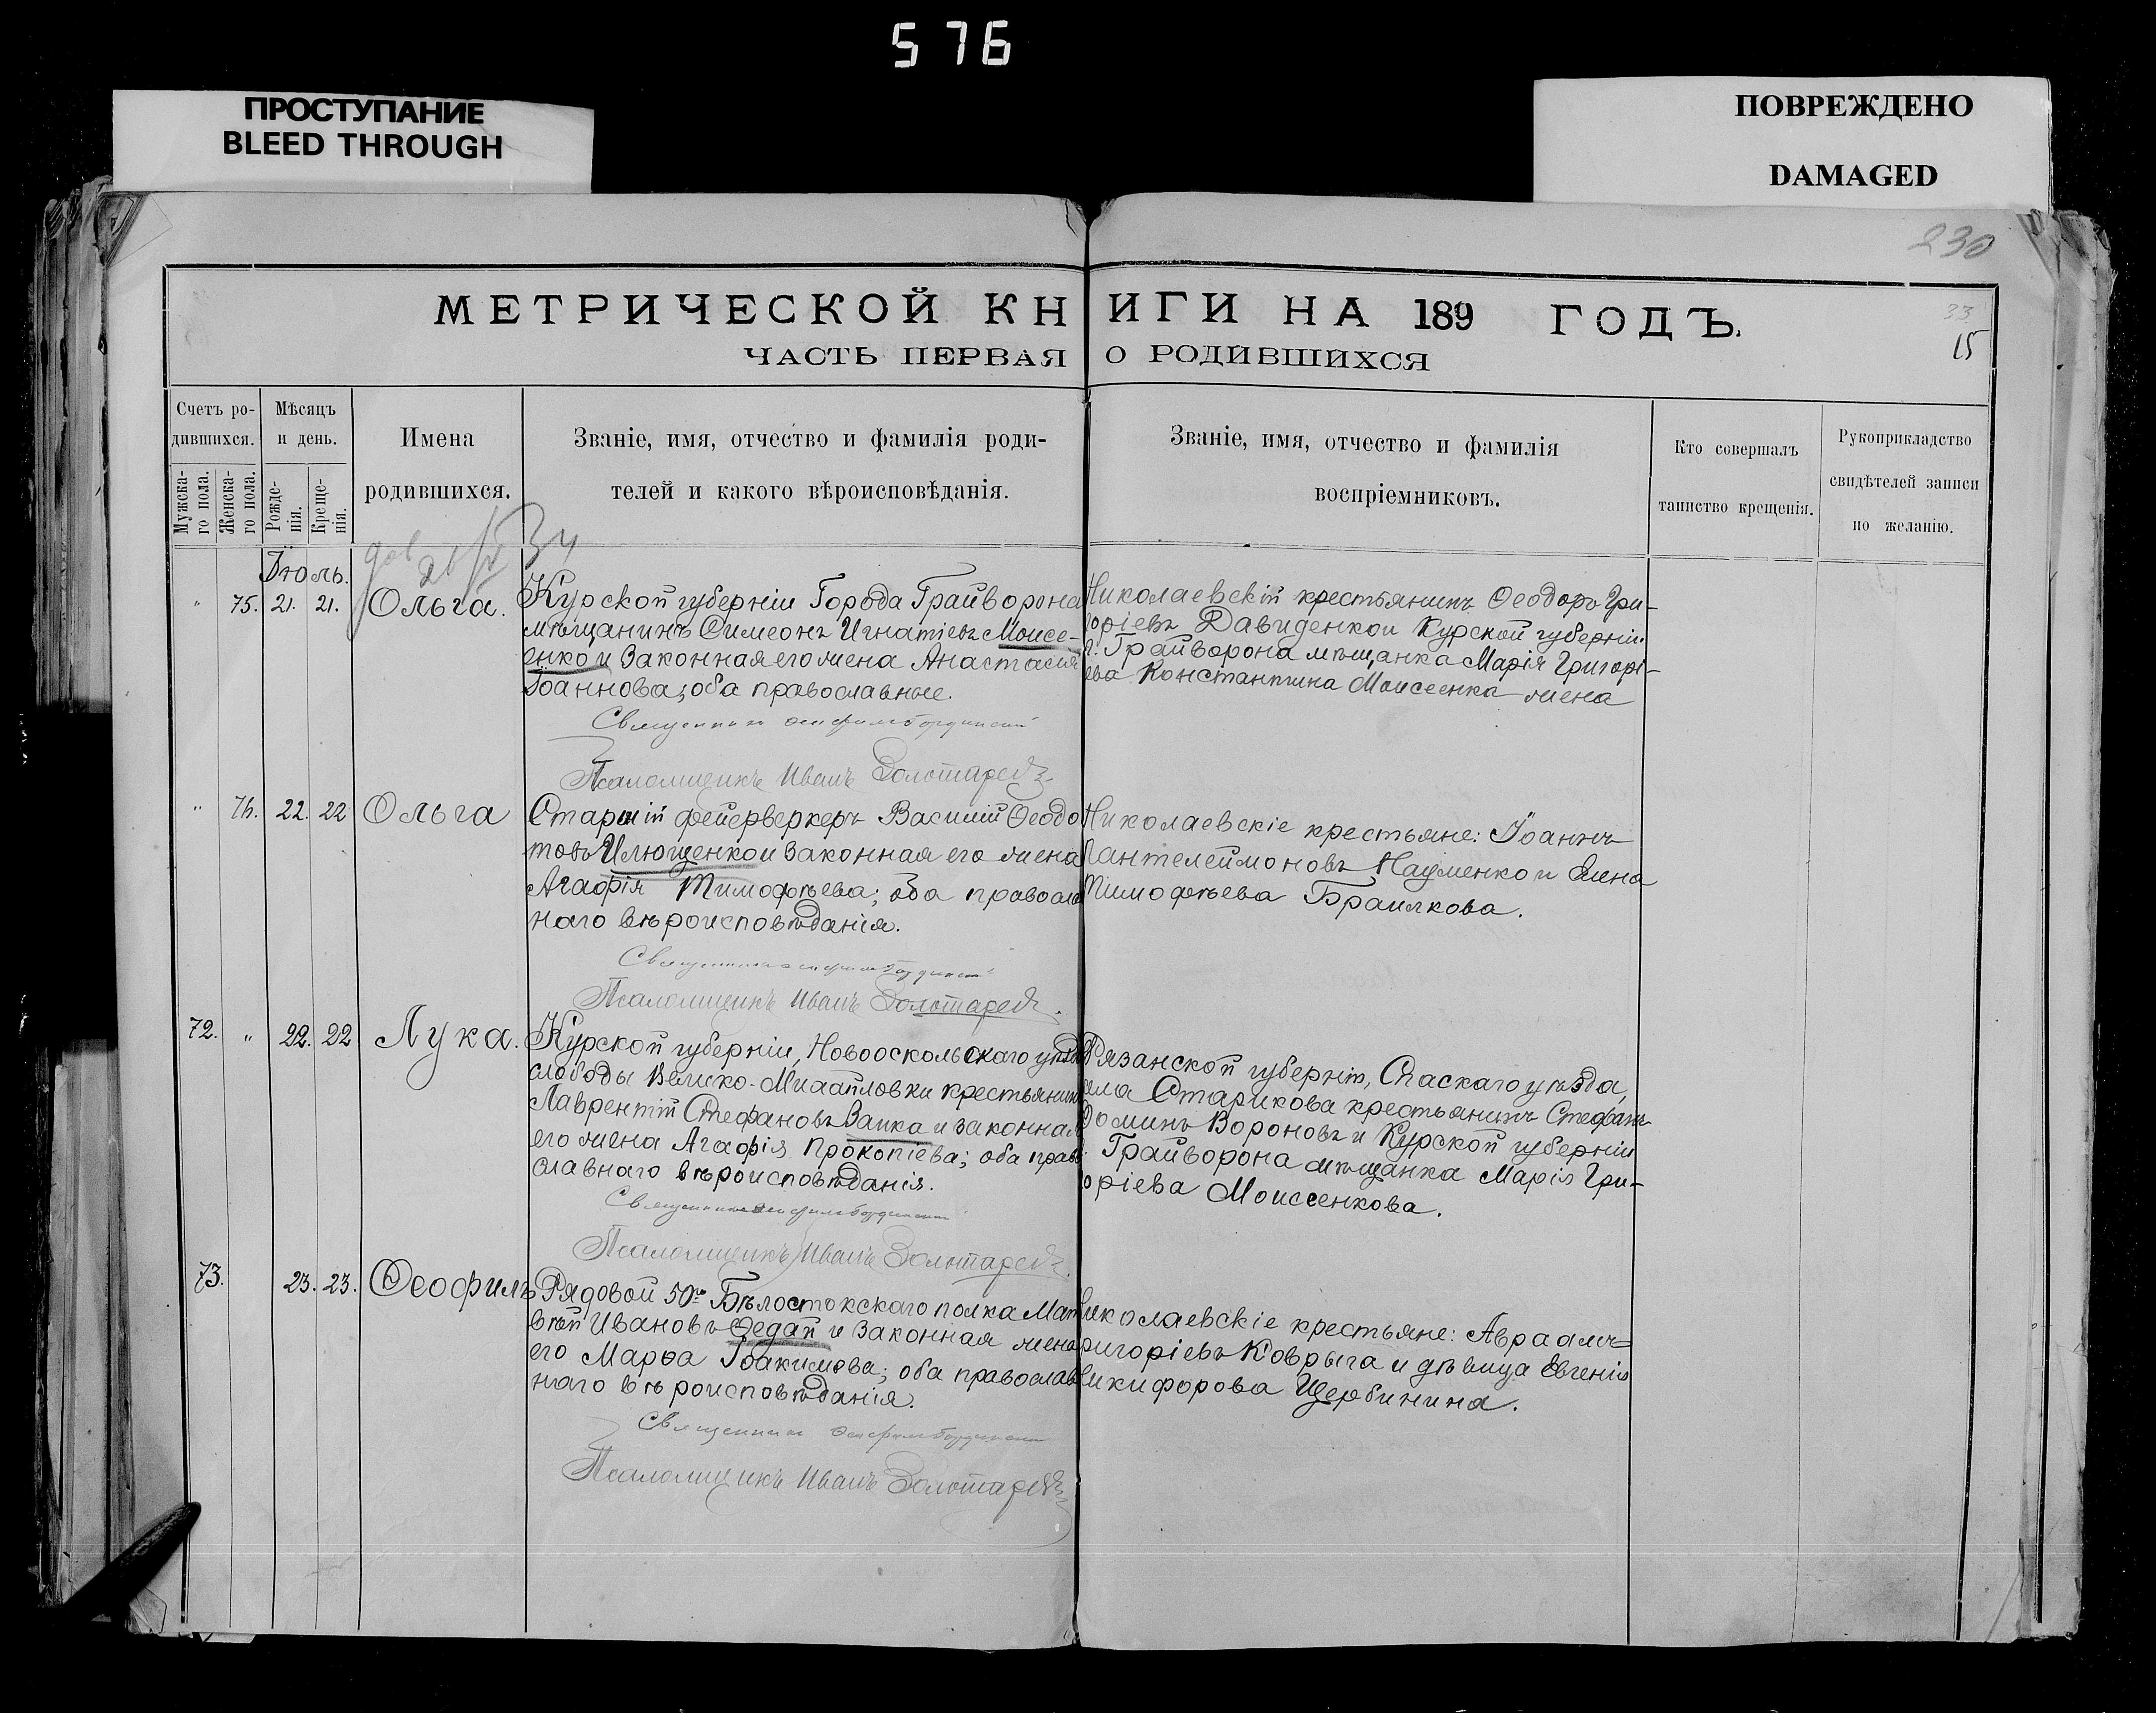 576
ПРОСТУПАНИЕ
BLEED THROUGH
ПОВРЕЖДЕНО
DAMAGED
230
МЕТРИЧЕСКОЙ КНИГИ НА 189 ГОДЪ.
33
15
ЧАСТЬ ПЕРВАЯ О РОДИВШИХСЯ
Счетъ ро-
дившихся.
Мужска-
го пола.
Женска-
го пола.
Мѣсяцъ
и день.
Рожде-
нія.
Креще-
нія.
Имена
родившихся.
Званіе, имя, отчество и фамилія роди-
телей и какого вѣроисповѣданія.
Званіе, имя, отчество и фамилія
воспріемниковъ.
Кто совершалъ
таинство крещенія.
Рукоприкладство
свидѣтелей записи
по желанію.
Іюль.
" 75. 21. 21. Ольга.
Курской губерніи Города Грайворона
мѣщанинъ Симеонъ Игнатіевъ Моисе-
енко и законная его жена Анастасія
Іоаннова; оба православные.
Священникъ
Псаломщикъ Иванъ Золотаревъ
Николаевскій крестьянинъ Ѳеодоръ Гри-
горіевъ Давиденко и Курской губерніи
г. Грайворона мѣщанка Марія Григорі-
ева Константина Моисеенка жена
" 76. 22. 22 Ольга
Старшій фейерверкеръ Василій Ѳеодо
товъ Илющенко и законная его жена
Агафія Тимофѣева; оба правосла
наго вѣроисповѣданія.
Священникъ
Псаломщикъ Иванъ Золотаревъ.
Николаевскіе крестьяне: Іоаннъ
Пантелеймоновъ Науменко и Елена
Тимофѣева Браилкова.
72. " 22. 22 Лука.
Курской губерніи, Новооскольскаго уѣзда
слободы Велико-Михайловки крестьянинъ
Лаврентій Стефановъ Заика и законная
его жена Агафія Прокопіева; оба право
славнаго вѣроисповѣданія.
Священникъ
Псаломщикъ Иванъ Золотаревъ.
Рязанской губерніи, Спаскаго уѣзда,
села Старикова крестьянинъ Стефанъ
Доминъ Вороновъ и Курской губерніи
г. Грайворона мѣщанка Марія Гри-
горіева Моисеенкова.
73. 23. 23. Ѳеофилъ
Рядовой 50го Бѣлостокскаго полка Мат
вѣй Ивановъ Ѳедай и законная жена
его Марѳа Іоакимова; оба православ
наго вѣроисповѣданія.
Священникъ
Псаломщикъ Иванъ Золотаревъ
Николаевскіе крестьяне: Авраамъ
Григоріевъ Коврыга и дѣвица Евгенія
Никифорова Щербинина.